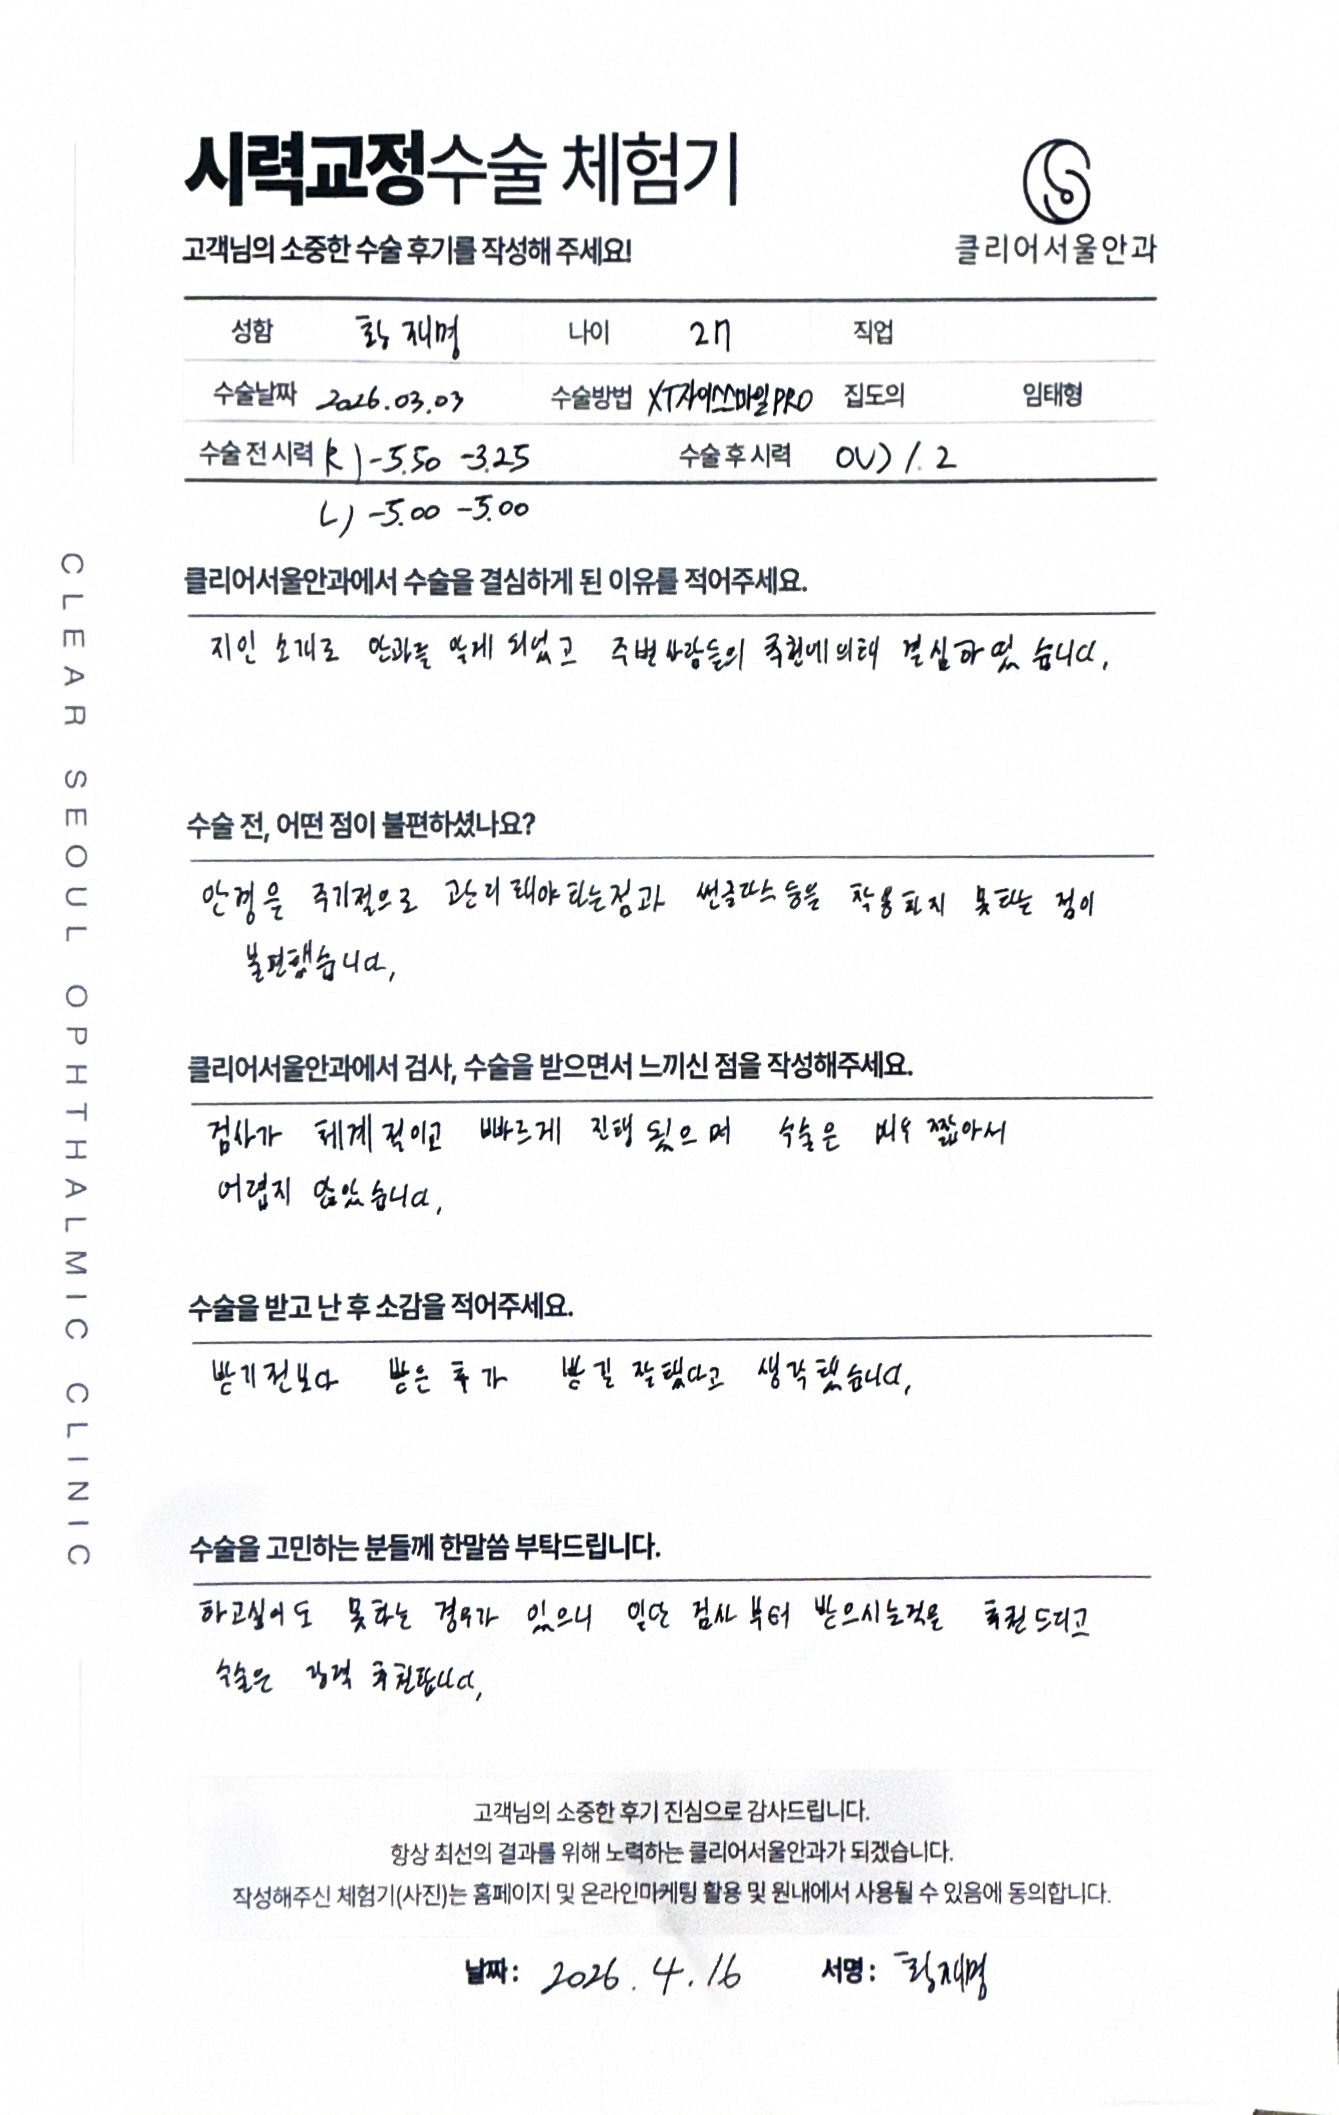 시력교정수술 체험기
고객님의 소중한 수술 후기를 작성해 주세요!
클리어서울안과
성함 황재명 나이 27 직업
수술날짜 2026.03.03 수술방법 XT자이스스마일PRO 집도의 임태형
수술 전 시력 R) -5.50 -3.25 수술 후 시력 OU) 1.2
L) -5.00 -5.00
클리어서울안과에서 수술을 결심하게 된 이유를 적어주세요.
지인 소개로 안과를 알게 되었고 주변사람들의 추천에의해 결심하였습니다.
수술 전, 어떤 점이 불편하셨나요?
안경을 주기적으로 관리해야하는점과 썬글라스 등을 착용하지 못하는 점이
불편했습니다.
클리어서울안과에서 검사, 수술을 받으면서 느끼신 점을 작성해주세요.
검사가 체계적이고 빠르게 진행됬으며 수술은 매우 짧아서
어렵지 않았습니다.
수술을 받고 난 후 소감을 적어주세요.
받기전보다 받은 후가 받길 잘했다고 생각했습니다.
수술을 고민하는 분들께 한말씀 부탁드립니다.
하고싶어도 못하는 경우가 있으니 일단 검사부터 받으시는것을 추천드리고
수술은 강력 추천합니다.
고객님의 소중한 후기 진심으로 감사드립니다.
항상 최선의 결과를 위해 노력하는 클리어서울안과가 되겠습니다.
작성해주신 체험기(사진)는 홈페이지 및 온라인마케팅 활용 및 원내에서 사용될 수 있음에 동의합니다.
날짜 : 2026.4.16 서명 : 황재명
CLEAR SEOUL OPHTHALMIC CLINIC